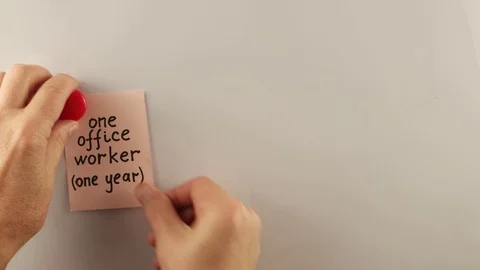 one
office
worker
(one year)